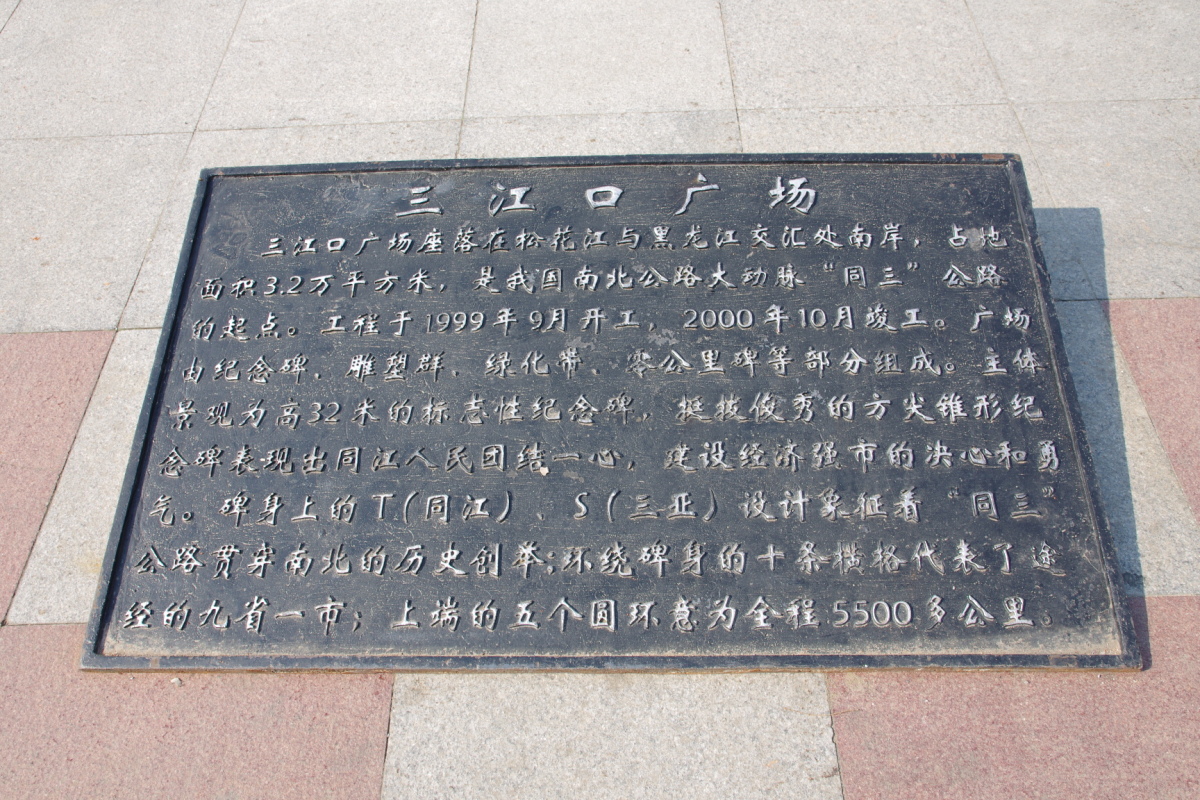 三江口广场
三江口广场座落在松花江与黑龙江交汇处南岸，占地
面积3.2万平方米，是我国南北公路大动脉“同三”公路
的起点。工程于1999年9月开工，2000年10月竣工。广场
由纪念碑、雕塑群、绿化带、零公里碑等部分组成。主体
景观为高32米的标志性纪念碑，挺拔俊秀的方尖锥形纪
念碑表现出同江人民团结一心，建设经济强市的决心和勇
气。碑身上的T(同江)、S(三亚)设计象征着“同三”
公路贯穿南北的历史创举；环绕碑身的十条横格代表了途
经的九省一市；上端的五个圆环意为全程5500多公里。